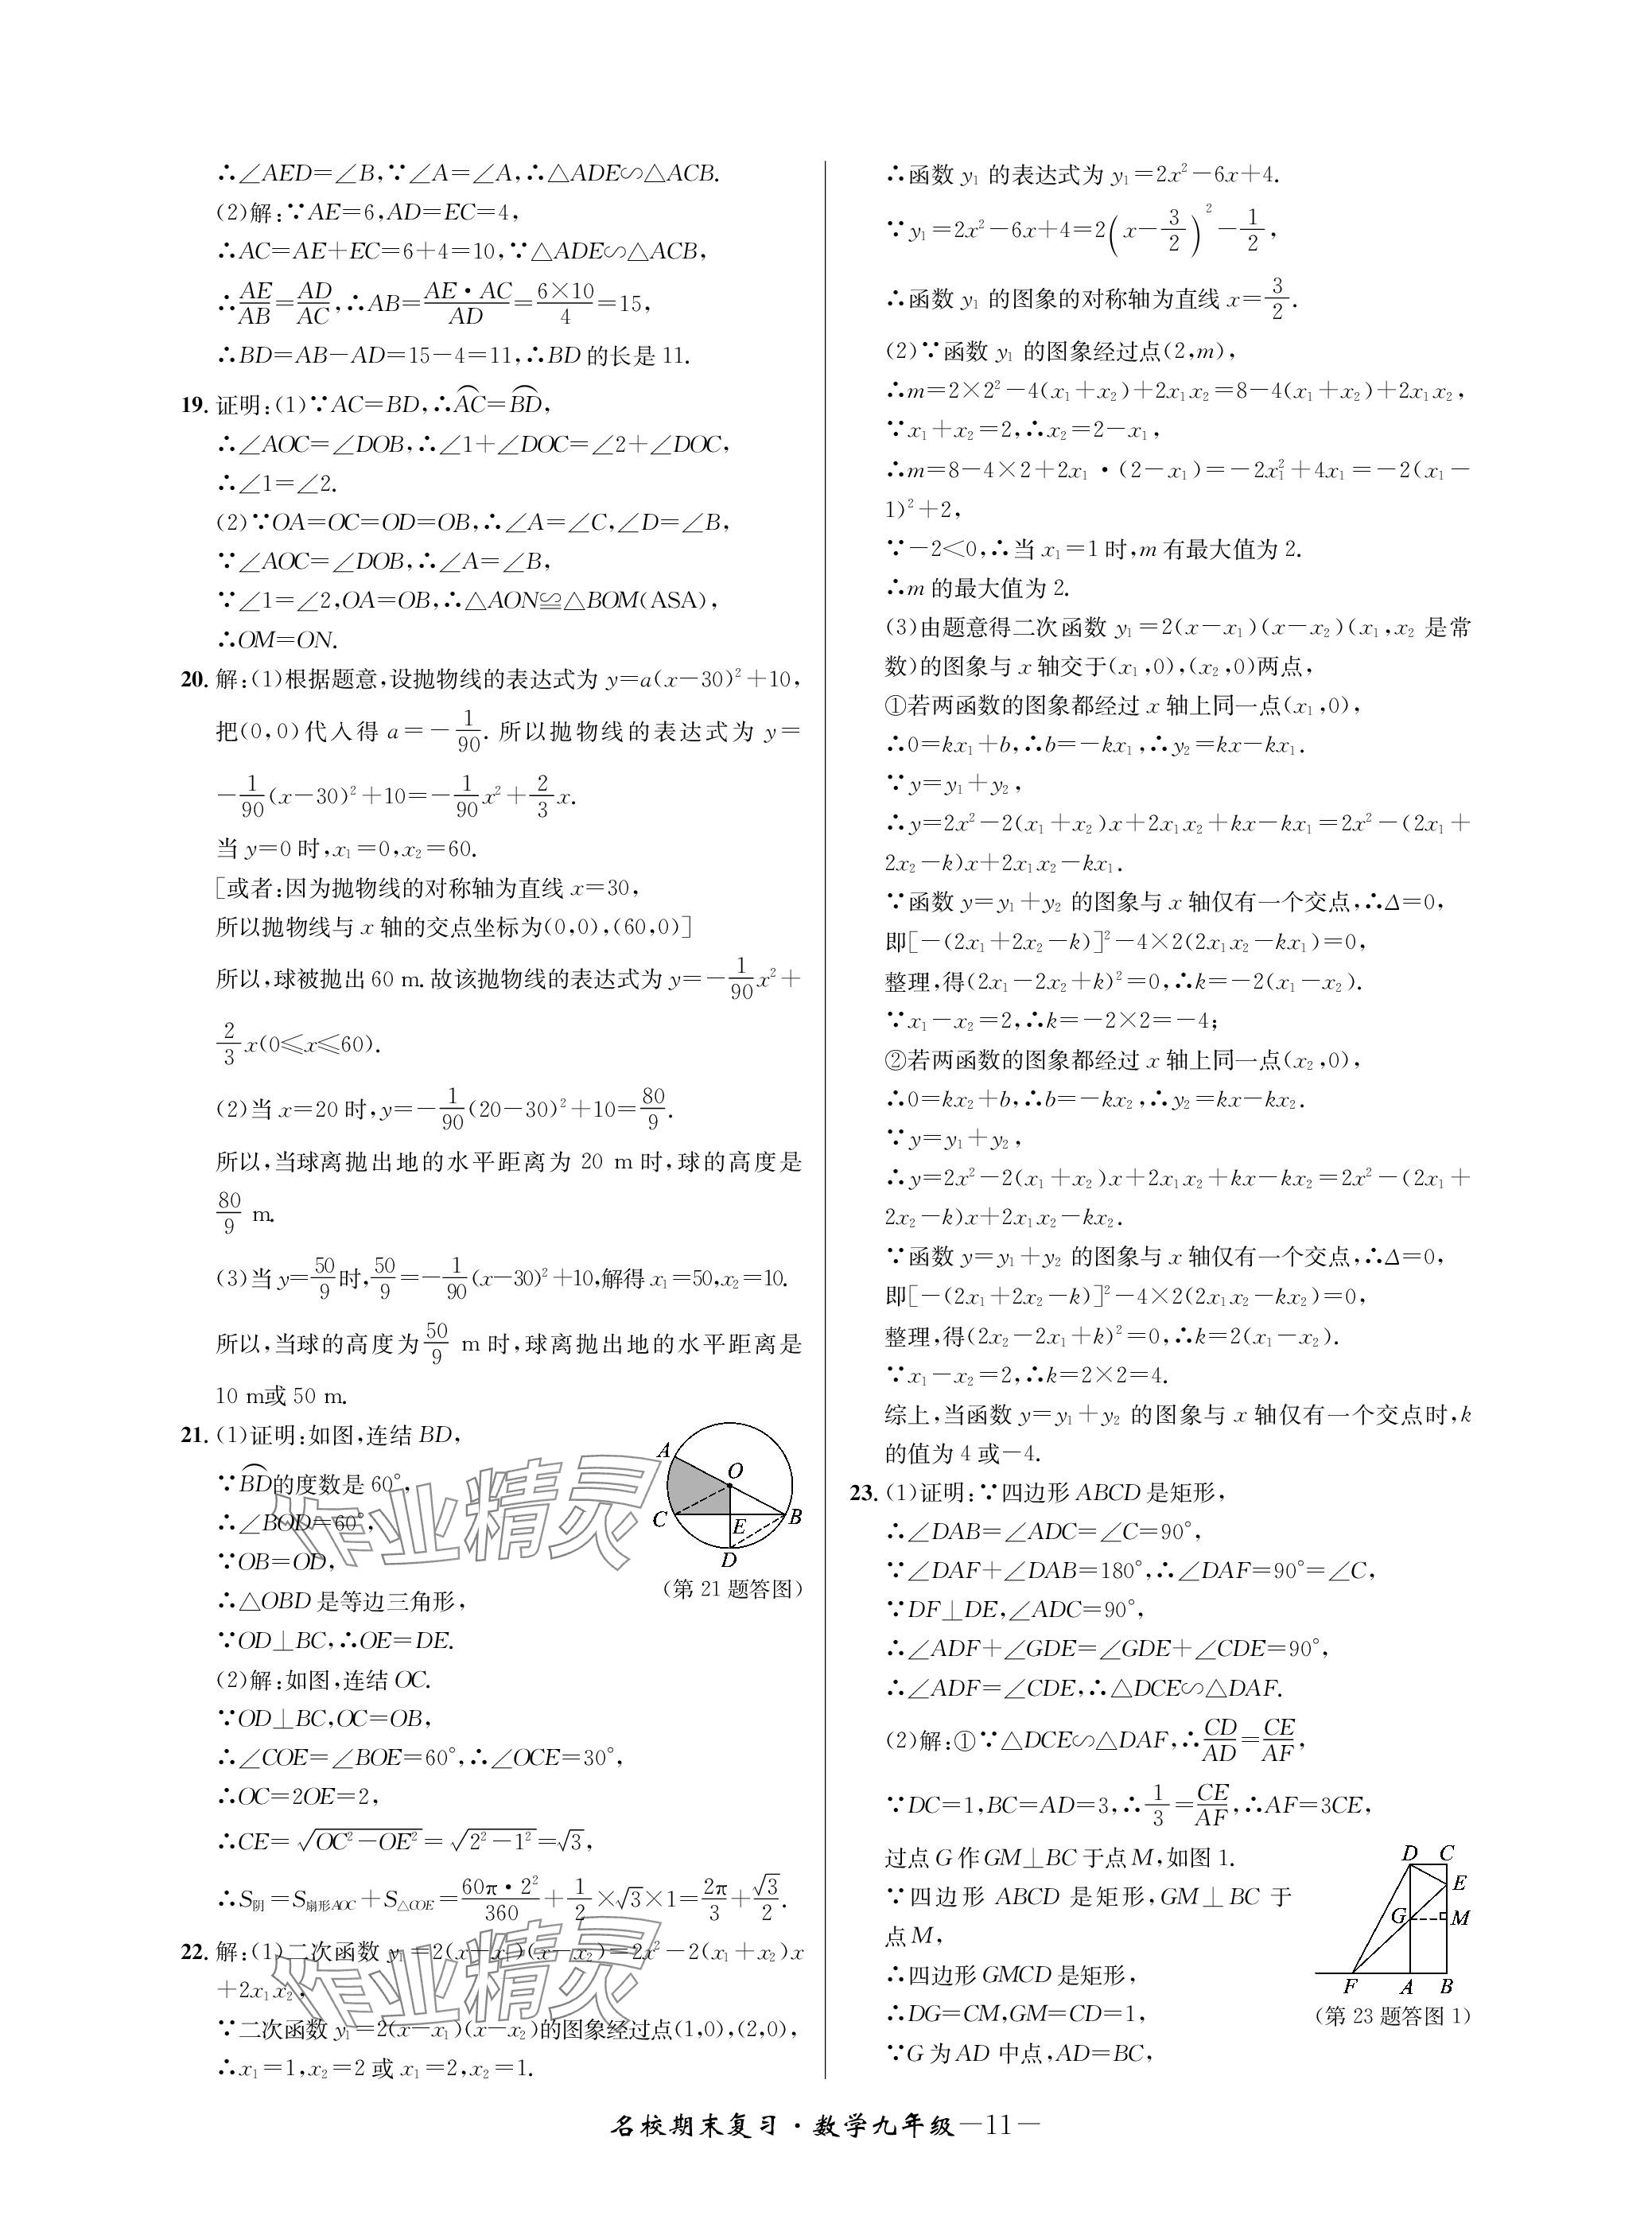 ∴∠AED=∠B,∵∠A=∠A,∴△ADE∽△ACB.
(2)解:∵AE=6,AD=EC=4,
∴AC=AE+EC=6+4=10,∵△ADE∽△ACB,
∴AE/AB=AD/AC,∴AB=AE·AC/AD=6×10/4=15,
∴BD=AB−AD=15−4=11,∴BD的长是11.
19. 证明:(1)∵AC=BD,∴⌒AC=⌒BD,
∴∠AOC=∠DOB,∴∠1+∠DOC=∠2+∠DOC,
∴∠1=∠2.
(2)∵OA=OC=OD=OB,∴∠A=∠C,∠D=∠B,
∵∠AOC=∠DOB,∴∠A=∠B,
∵∠1=∠2,OA=OB,∴△AON≌△BOM(ASA),
∴OM=ON.
20. 解:(1)根据题意,设抛物线的表达式为 y=a(x−30)²+10,
把(0,0)代入得 a=−1/90. 所以抛物线的表达式为 y=
−1/90(x−30)²+10=−1/90x²+2/3x.
当 y=0 时,x₁=0,x₂=60.
[或者:因为抛物线的对称轴为直线 x=30,
所以抛物线与 x 轴的交点坐标为(0,0),(60,0)]
所以,球被抛出 60 m. 故该抛物线的表达式为 y=−1/90x²+
2/3x(0≤x≤60).
(2)当 x=20 时,y=−1/90(20−30)²+10=80/9.
所以,当球离抛出地的水平距离为 20 m 时,球的高度是
80/9 m.
(3)当 y=50/9时,50/9=−1/90(x−30)²+10,解得 x₁=50,x₂=10.
所以,当球的高度为50/9 m 时,球离抛出地的水平距离是
10 m或 50 m.
21. (1)证明:如图,连结 BD,
∵⌒BD的度数是 60°,
∴∠BOD=60°,
∵OB=OD,
∴△OBD 是等边三角形,
∵OD⊥BC,∴OE=DE.
A
O
C
E
B
D
(第 21 题答图)
(2)解:如图,连结 OC.
∵OD⊥BC,OC=OB,
∴∠COE=∠BOE=60°,∴∠OCE=30°,
∴OC=2OE=2,
∴CE=√(OC²−OE²)=√(2²−1²)=√3,
∴S阴=S扇形AOC+S△COE=60π·2²/360+1/2×√3×1=2π/3+√3/2.
22. 解:(1)二次函数 y₁=2(x−x₁)(x−x₂)=2x²−2(x₁+x₂)x
+2x₁x₂,
∵二次函数 y₁=2(x−x₁)(x−x₂)的图象经过点(1,0),(2,0),
∴x₁=1,x₂=2 或 x₁=2,x₂=1.
∴函数 y₁ 的表达式为 y₁=2x²−6x+4.
∵y₁=2x²−6x+4=2(x−3/2)²−1/2,
∴函数 y₁ 的图象的对称轴为直线 x=3/2.
(2)∵函数 y₁ 的图象经过点(2,m),
∴m=2×2²−4(x₁+x₂)+2x₁x₂=8−4(x₁+x₂)+2x₁x₂,
∵x₁+x₂=2,∴x₂=2−x₁,
∴m=8−4×2+2x₁·(2−x₁)=−2x₁²+4x₁=−2(x₁−
1)²+2,
∵−2<0,∴当 x₁=1 时,m 有最大值为 2.
∴m 的最大值为 2.
(3)由题意得二次函数 y₁=2(x−x₁)(x−x₂)(x₁,x₂ 是常
数)的图象与 x 轴交于(x₁,0),(x₂,0)两点,
①若两函数的图象都经过 x 轴上同一点(x₁,0),
∴0=kx₁+b,∴b=−kx₁,∴y₂=kx−kx₁.
∵y=y₁+y₂,
∴y=2x²−2(x₁+x₂)x+2x₁x₂+kx−kx₁=2x²−(2x₁+
2x₂−k)x+2x₁x₂−kx₁.
∵函数 y=y₁+y₂ 的图象与 x 轴仅有一个交点,∴Δ=0,
即[−(2x₁+2x₂−k)]²−4×2(2x₁x₂−kx₁)=0,
整理,得(2x₁−2x₂+k)²=0,∴k=−2(x₁−x₂).
∵x₁−x₂=2,∴k=−2×2=−4;
②若两函数的图象都经过 x 轴上同一点(x₂,0),
∴0=kx₂+b,∴b=−kx₂,∴y₂=kx−kx₂.
∵y=y₁+y₂,
∴y=2x²−2(x₁+x₂)x+2x₁x₂+kx−kx₂=2x²−(2x₁+
2x₂−k)x+2x₁x₂−kx₂.
∵函数 y=y₁+y₂ 的图象与 x 轴仅有一个交点,∴Δ=0,
即[−(2x₁+2x₂−k)]²−4×2(2x₁x₂−kx₂)=0,
整理,得(2x₂−2x₁+k)²=0,∴k=2(x₁−x₂).
∵x₁−x₂=2,∴k=2×2=4.
综上,当函数 y=y₁+y₂ 的图象与 x 轴仅有一个交点时,k
的值为 4 或−4.
23. (1)证明:∵四边形 ABCD 是矩形,
∴∠DAB=∠ADC=∠C=90°,
∵∠DAF+∠DAB=180°,∴∠DAF=90°=∠C,
∵DF⊥DE,∠ADC=90°,
∴∠ADF+∠GDE=∠GDE+∠CDE=90°,
∴∠ADF=∠CDE,∴△DCE∽△DAF.
(2)解:①∵△DCE∽△DAF,∴CD/AD=CE/AF,
∵DC=1,BC=AD=3,∴1/3=CE/AF,∴AF=3CE,
过点 G 作 GM⊥BC 于点 M,如图 1.
∵四边形 ABCD 是矩形,GM⊥BC 于
点 M,
∴四边形 GMCD 是矩形,
∴DG=CM,GM=CD=1,
∵G 为 AD 中点,AD=BC,
D C
E
G M
F A B
(第 23 题答图 1)
名校期末复习·数学九年级—11—
作业精灵
作业精灵